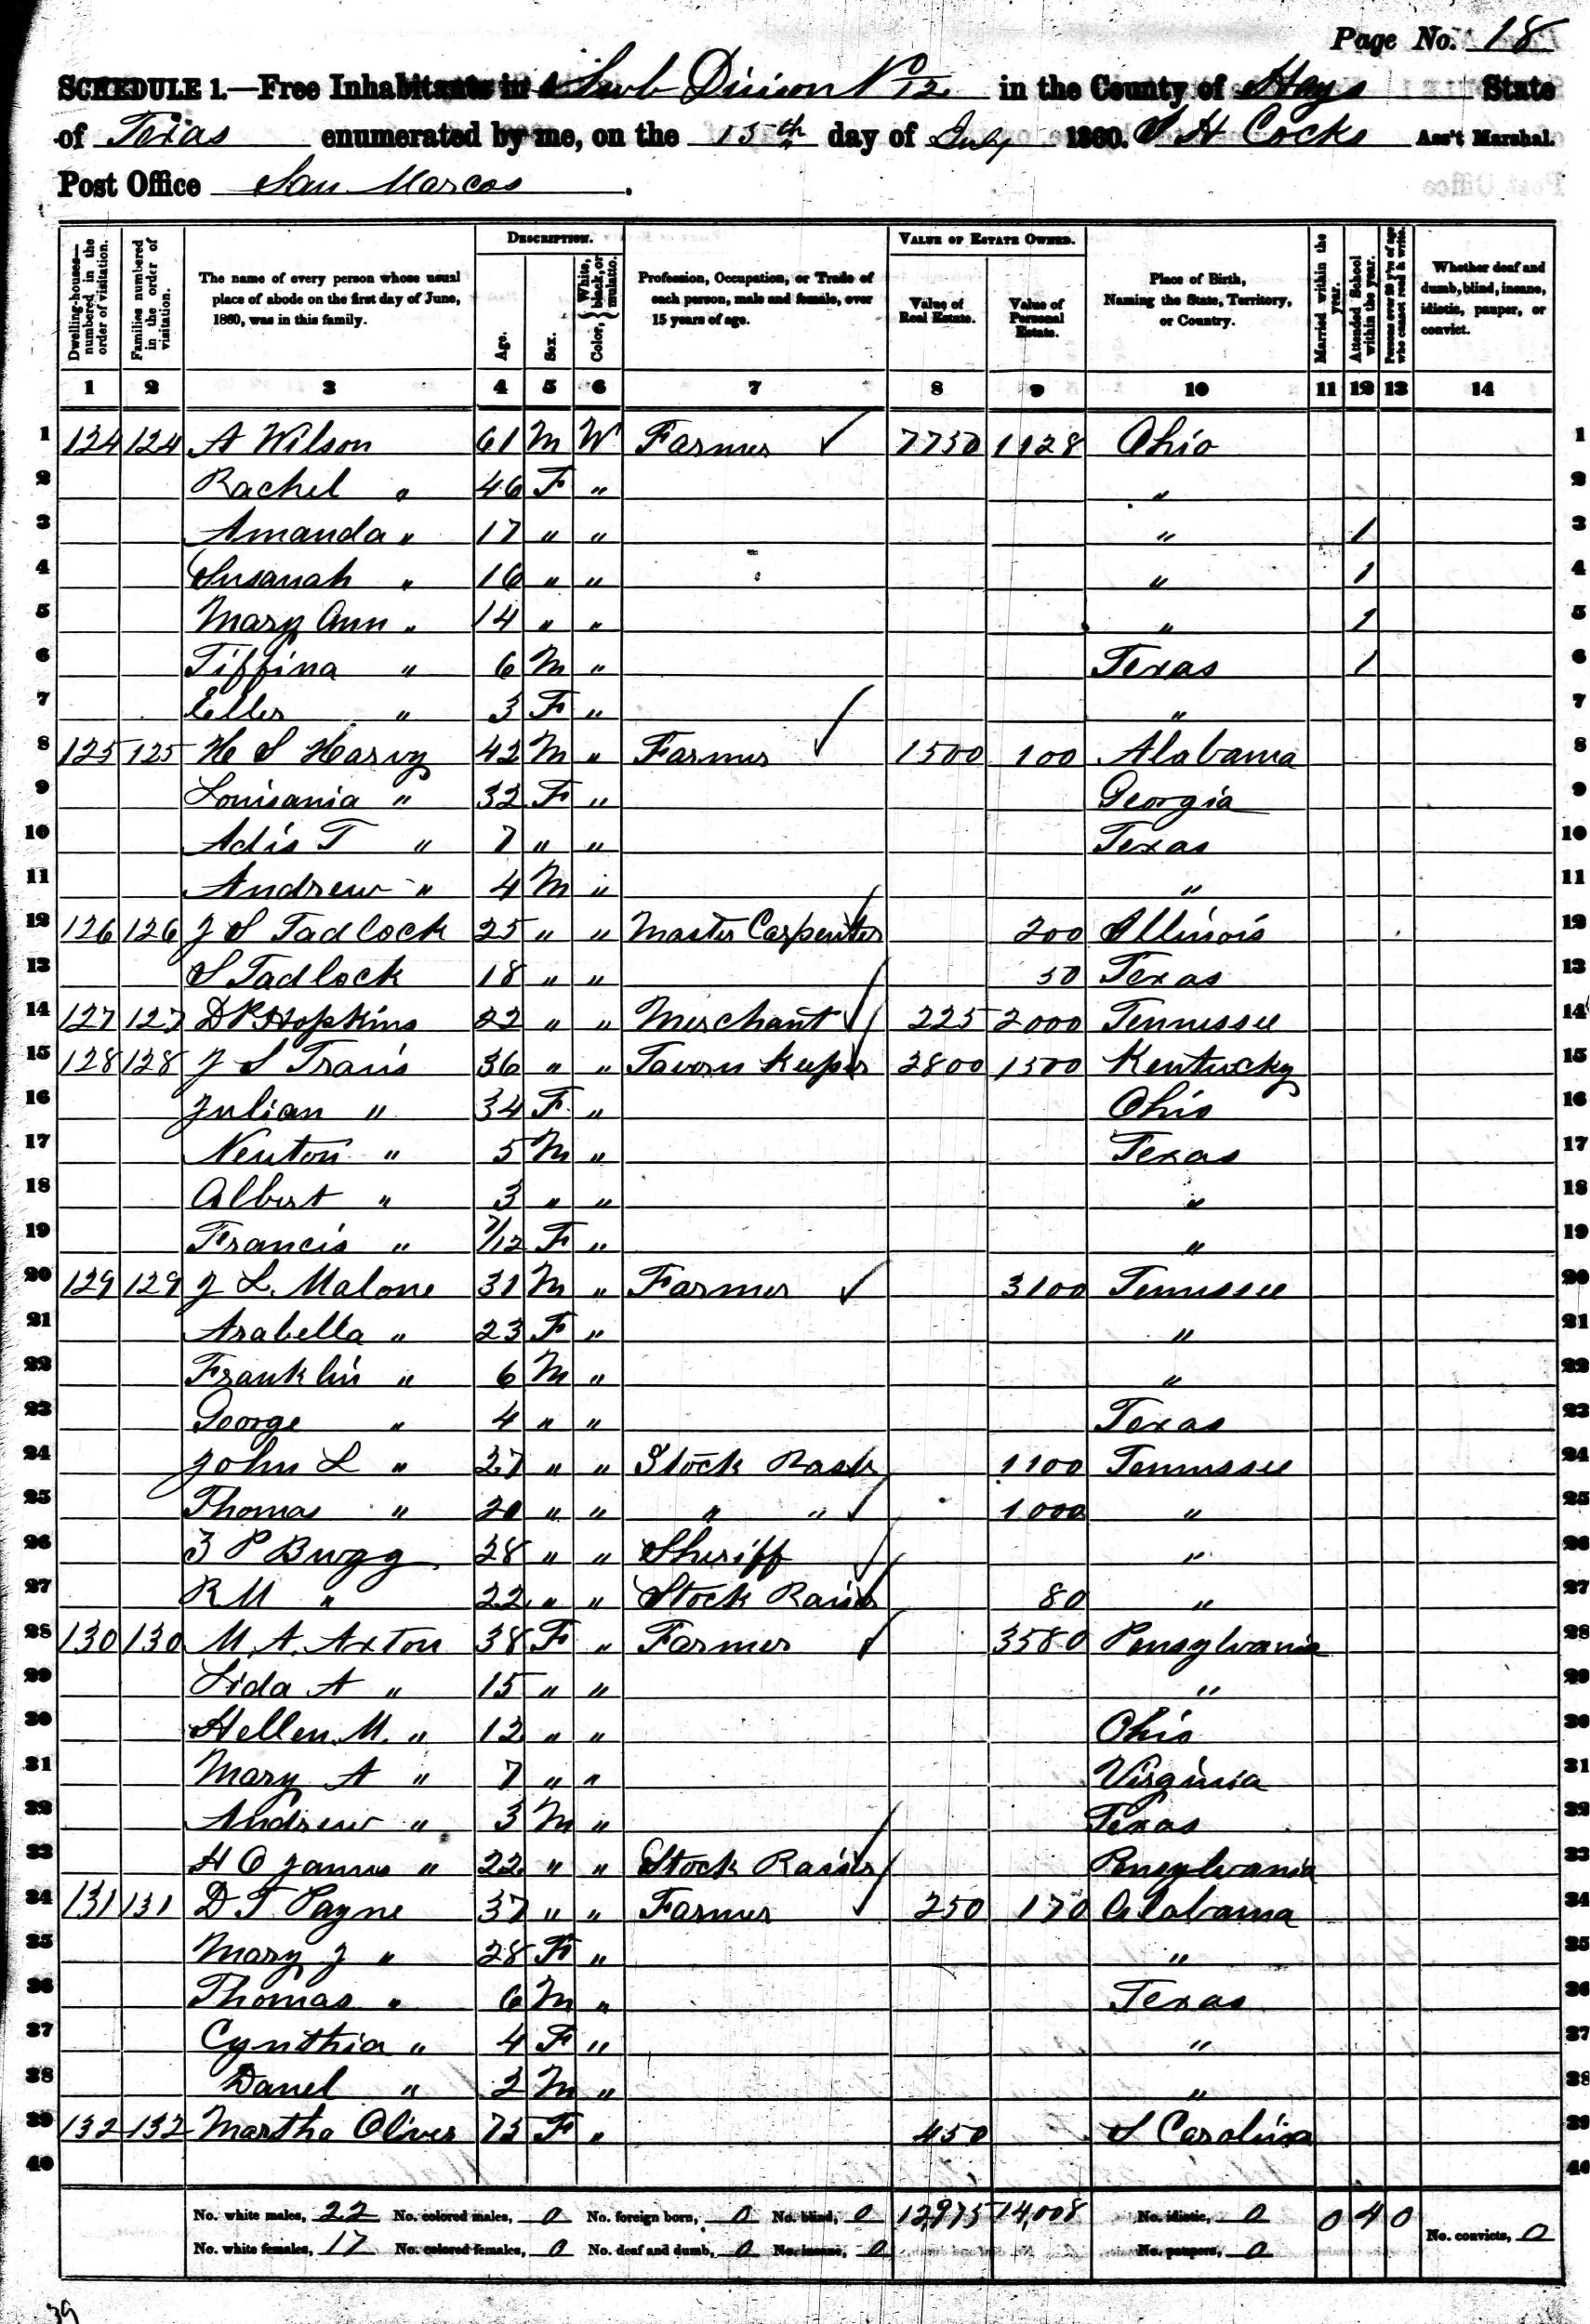 Page No. 18
SCHEDULE 1.—Free Inhabitants in Sub Division No 2 in the County of Hays State
of Texas enumerated by me, on the 15th day of July 1860. S H Cocks Ass't Marshal.
Post Office San Marcos
Dwelling-houses—numbered in the order of visitation. Families numbered in the order of visitation. The name of every person whose usual place of abode on the first day of June, 1860, was in this family. Description. Age. Sex. Color, White, black, or mulatto. Profession, Occupation, or Trade of each person, male and female, over 15 years of age. Value of Estate Owned. Value of Real Estate. Value of Personal Estate. Place of Birth, Naming the State, Territory, or Country. Married within the year. Attended School within the year. Persons over 20 y'rs of age who cannot read & write. Whether deaf and dumb, blind, insane, idiotic, pauper, or convict.
1 2 3 4 5 6 7 8 9 10 11 12 13 14
1 124 124 A Wilson 61 M W Farmer 7750 1128 Ohio 1
2 Rachel " 46 F " " 2
3 Amanda " 17 " " " 1 3
4 Susanah " 16 " " " 1 4
5 Mary Ann " 14 " " " 1 5
6 Tiffina " 6 M " Texas 1 6
7 Eller " 3 F " " 7
8 125 125 H S Harvy 42 M " Farmer 1500 100 Alabama 8
9 Louisania " 32 F " Georgia 9
10 Adis T " 7 " " Texas 10
11 Andrew " 4 M " " 11
12 126 126 J S Tadlock 25 " " Master Carpenter 200 Illinois 12
13 S Tadlock 18 " " 50 Texas 13
14 127 127 D P Hopkins 22 " " Merchant 225 2000 Tennessee 14
15 128 128 J S Travis 36 " " Tavern Keeper 2800 1500 Kentucky 15
16 Julian " 34 F " Ohio 16
17 Newton " 5 M " Texas 17
18 Albert " 3 " " " 18
19 Francis " 7/12 F " " 19
20 129 129 J L. Malone 31 M " Farmer 3100 Tennessee 20
21 Arabella " 23 F " " 21
22 Franklin " 6 M " " 22
23 George " 4 " " Texas 23
24 John L " 27 " " Stock Rasr 1100 Tennessee 24
25 Thomas " 20 " " " " 1000 " 25
26 Z P Bugg 28 " " Sheriff " 26
27 R M " 22 " " Stock Raiser 80 " 27
28 130 130 M. A. Axton 38 F " Farmer 3580 Pensylvania 28
29 Lida A " 15 " " " 29
30 Hellen M. " 12 " " Ohio 30
31 Mary A " 7 " " Virginia 31
32 Andrew " 3 M " Texas 32
33 H O James " 22 " " Stock Raiser Pensylvania 33
34 131 131 D T Payne 37 " " Farmer 250 170 Alabama 34
35 Mary J " 28 F " " 35
36 Thomas " 6 M " Texas 36
37 Cynthia " 4 F " " 37
38 Danel " 2 M " " 38
39 132 132 Martha Oliver 75 F " 450 S Carolina 39
40 40
No. white males, 22 No. colored males, 0 No. foreign born, 0 No. blind, 0 12,975 14,008 No. idiotic, 0 0 4 0 No. convicts, 0
No. white females, 17 No. colored females, 0 No. deaf and dumb, 0 No. insane, 0 No. paupers, 0
39